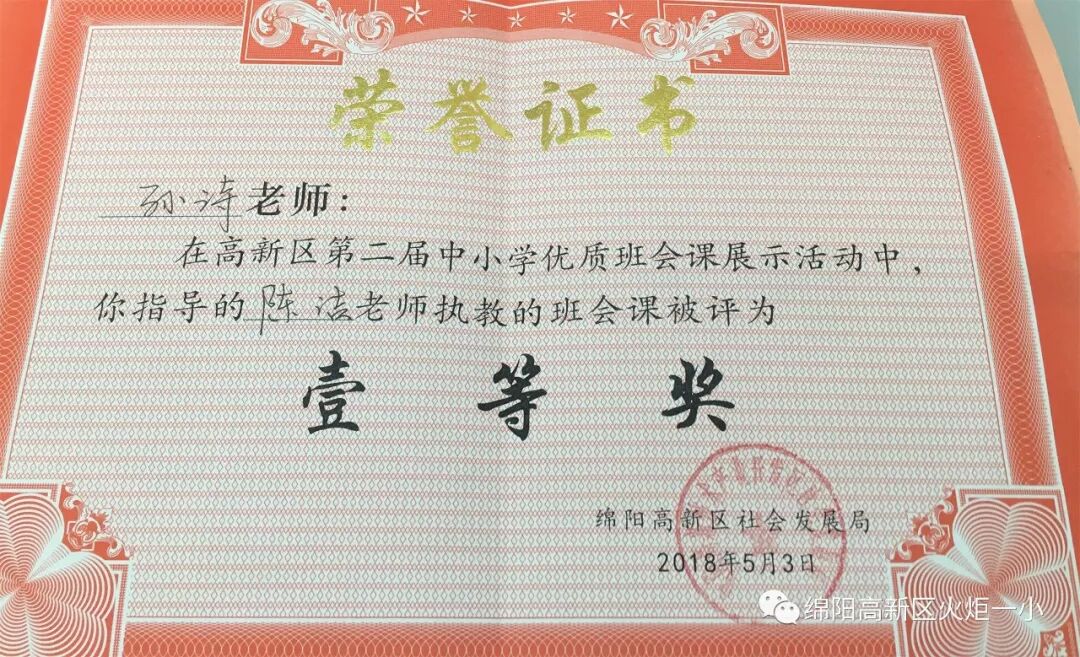 荣誉证书
孙诗老师：
在高新区第二届中小学优质班会课展示活动中，
你指导的陈洁老师执教的班会课被评为
壹等奖
绵阳高新区社会发展局
2018年5月3日
绵阳高新区火炬一小